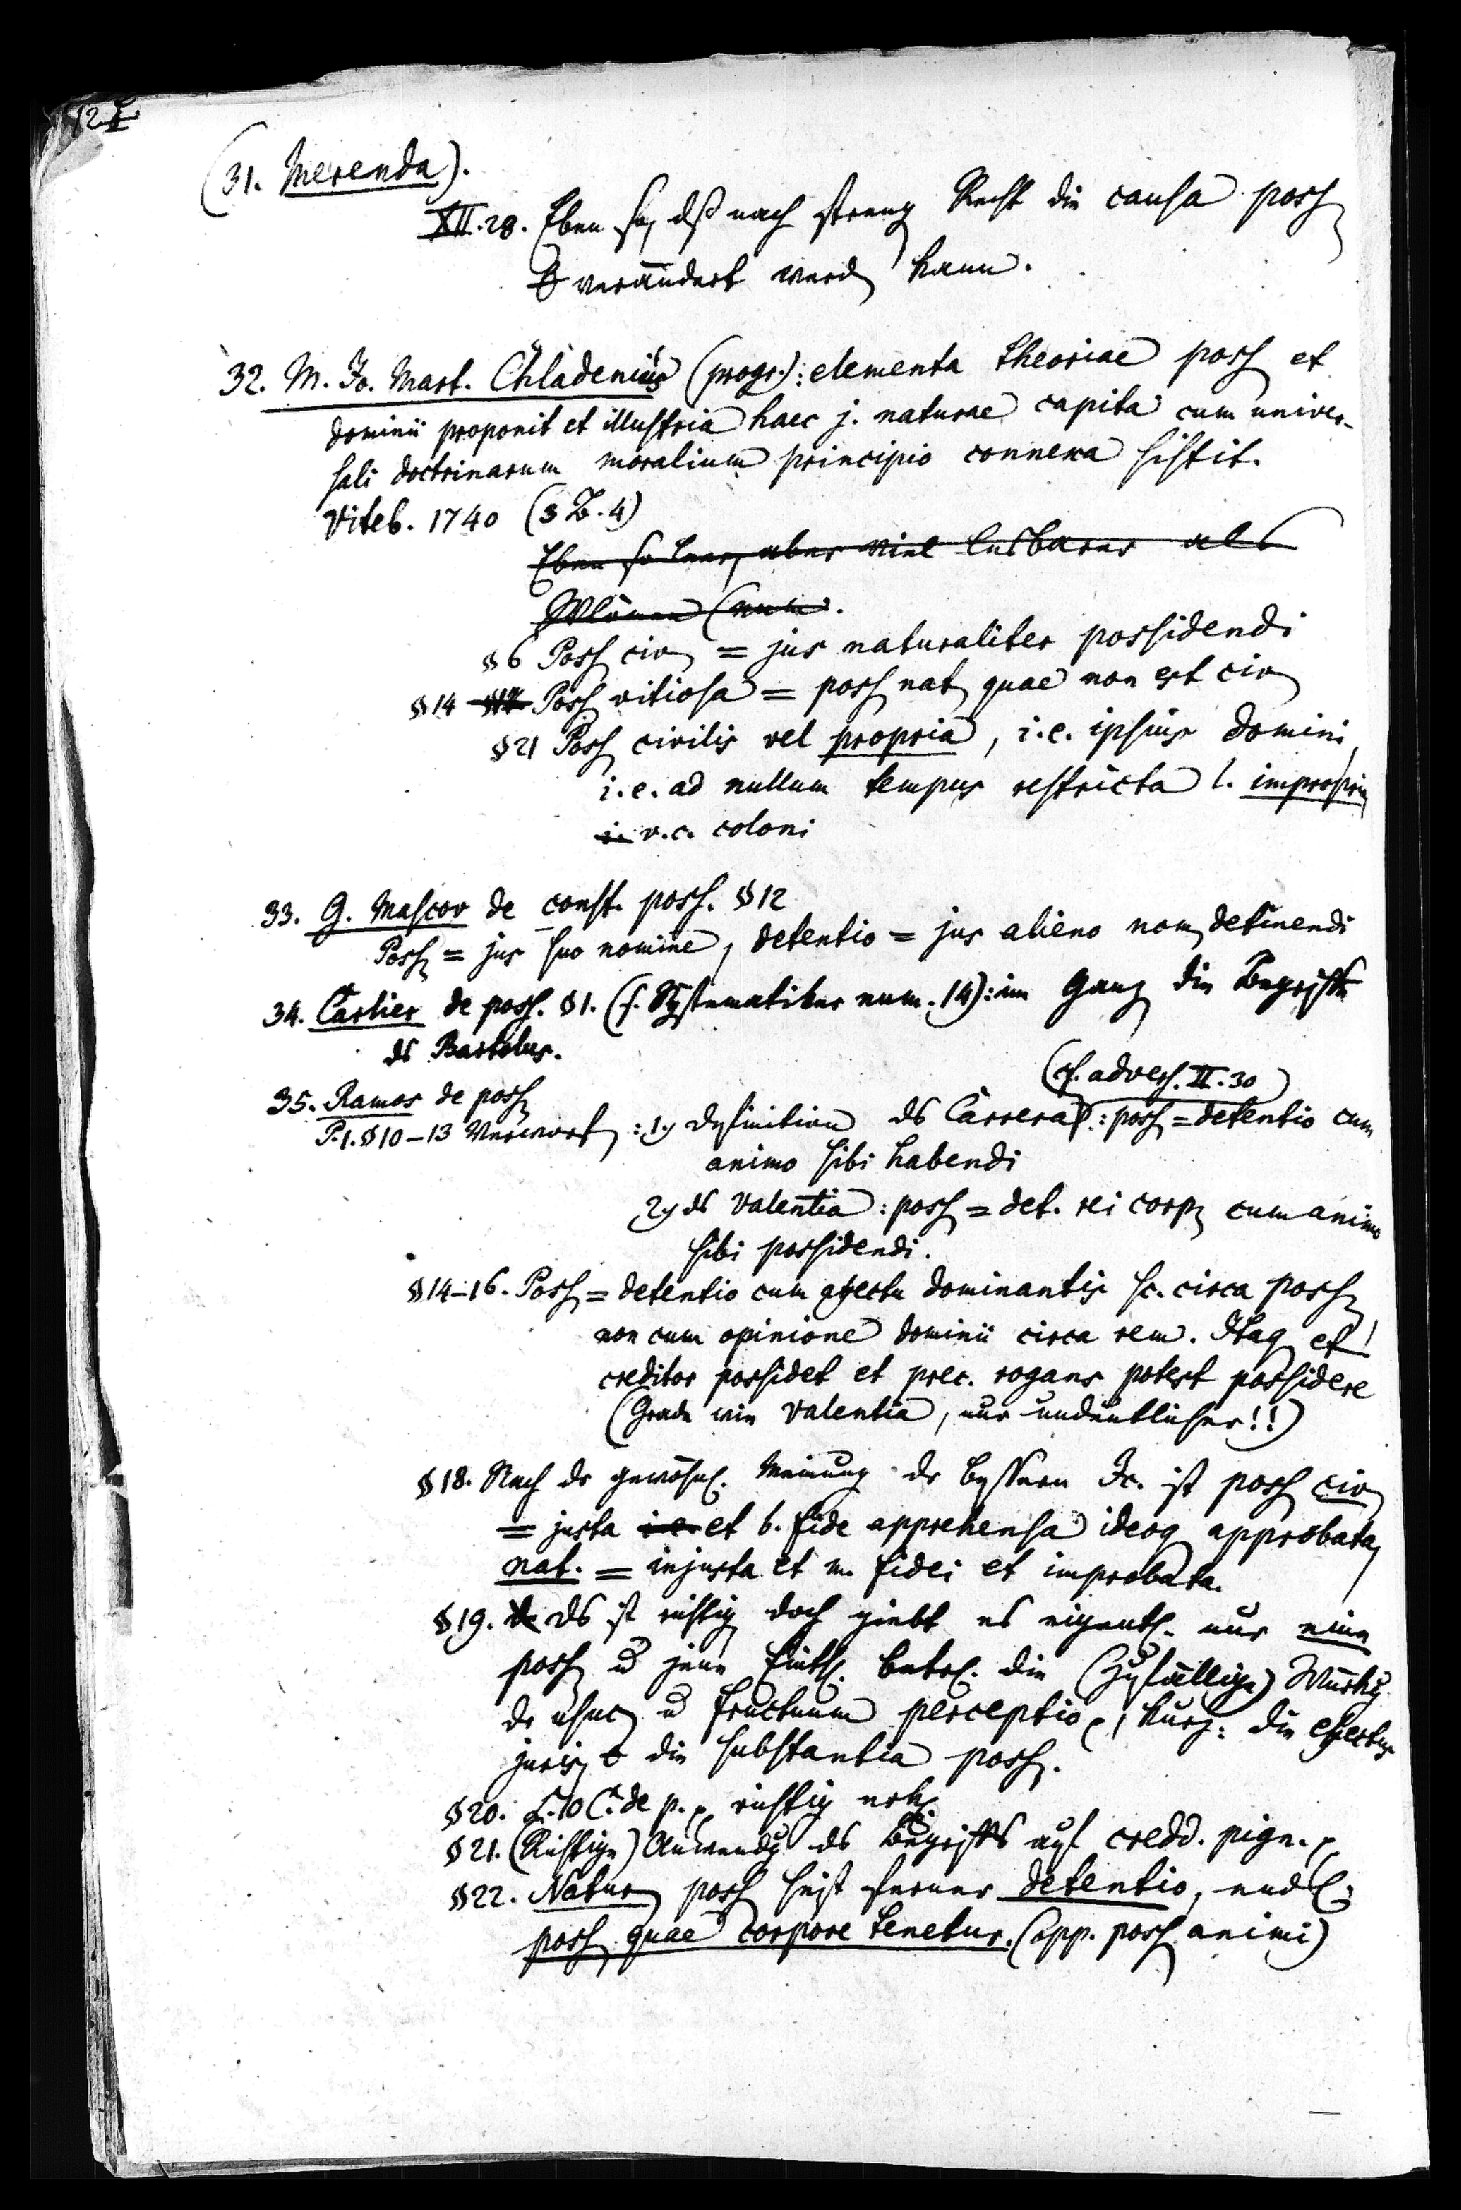 (31. Merenda).
XII. 28. Eben so, dß nach streng Recht die causa poss
verändert werd kann.
32. M. Jo. Mart. Chladenius (progr.): elementa theoriae poss et
dominii proponit et illustria haec j. naturae capita cum univer-
sali doctrinarum moralium principio connexa sistit.
Viteb. 1740 (3 B. 4)
Eben so leer, aber viel lesbarer als
§ 6 Poss civ = jus naturaliter possidendi
§ 14 Poss vitiosa = poss nat quae non est civ
§ 21 Poss civilis vel propria, i.e. ipsius domini,
i.e. ad nullum tempus restricta l. impropria
v.c. coloni
33. G. Mascov de const. poss. § 12
Poss = jus suo nomine, detentio = jus alieno nom detinendi
34. Carlier de poss. § 1. (s. Systematiker num. 14): im Ganz die Begriffe
ds Bartolus.
(cf. advers. II. 30)
35. Ramos de poss
P. 1. § 10–13 Verworf: 1.) Definition ds Carrera: poss = detentio cum
animo sibi habendi
2.) ds Valentia: poss = det. rei corp cum animo
sibi possidendi.
§ 14–16. Poss = detentio cum affectu dominantis sc. circa poss
non cum opinione dominii circa rem. Itaq et
creditor possidet et prec. rogans potest possidere
(Grade wie Valentia, nur undeutlicher!!)
§ 18. Nach dr gewöhnl. Meinung dr bessern Jc. ist poss civ
= justa i.e. et b. fide apprehensa ideoq approbata,
nat. = injusta et m. fidei et improbata.
§ 19. ds ist richtig doch giebt es eigentl. nur eine
poss u jene Einth. betrf. die (zufällige) Würkg
dr usuc u fructuum perceptio, kurz: die effectus
juris, die substantia poss.
§ 20. L. 10 C. de p. richtig erkl.
§ 21. (Richtige) Anwendg ds Begriffs auf credd. pign.
§ 22. Natur poss heist ferner detentio, endl.
poss quae corpore tenetur. (opp. poss animi)